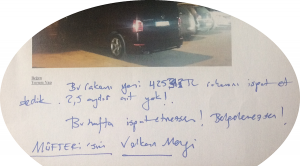 Bu rakamı yani 425 TL rakamını ispat et
dedik. 2,5 aydır ses yok!
Bu hafta ispatetmezsen! Belgelemezsen!
MÜFTERİ'sin Volkan